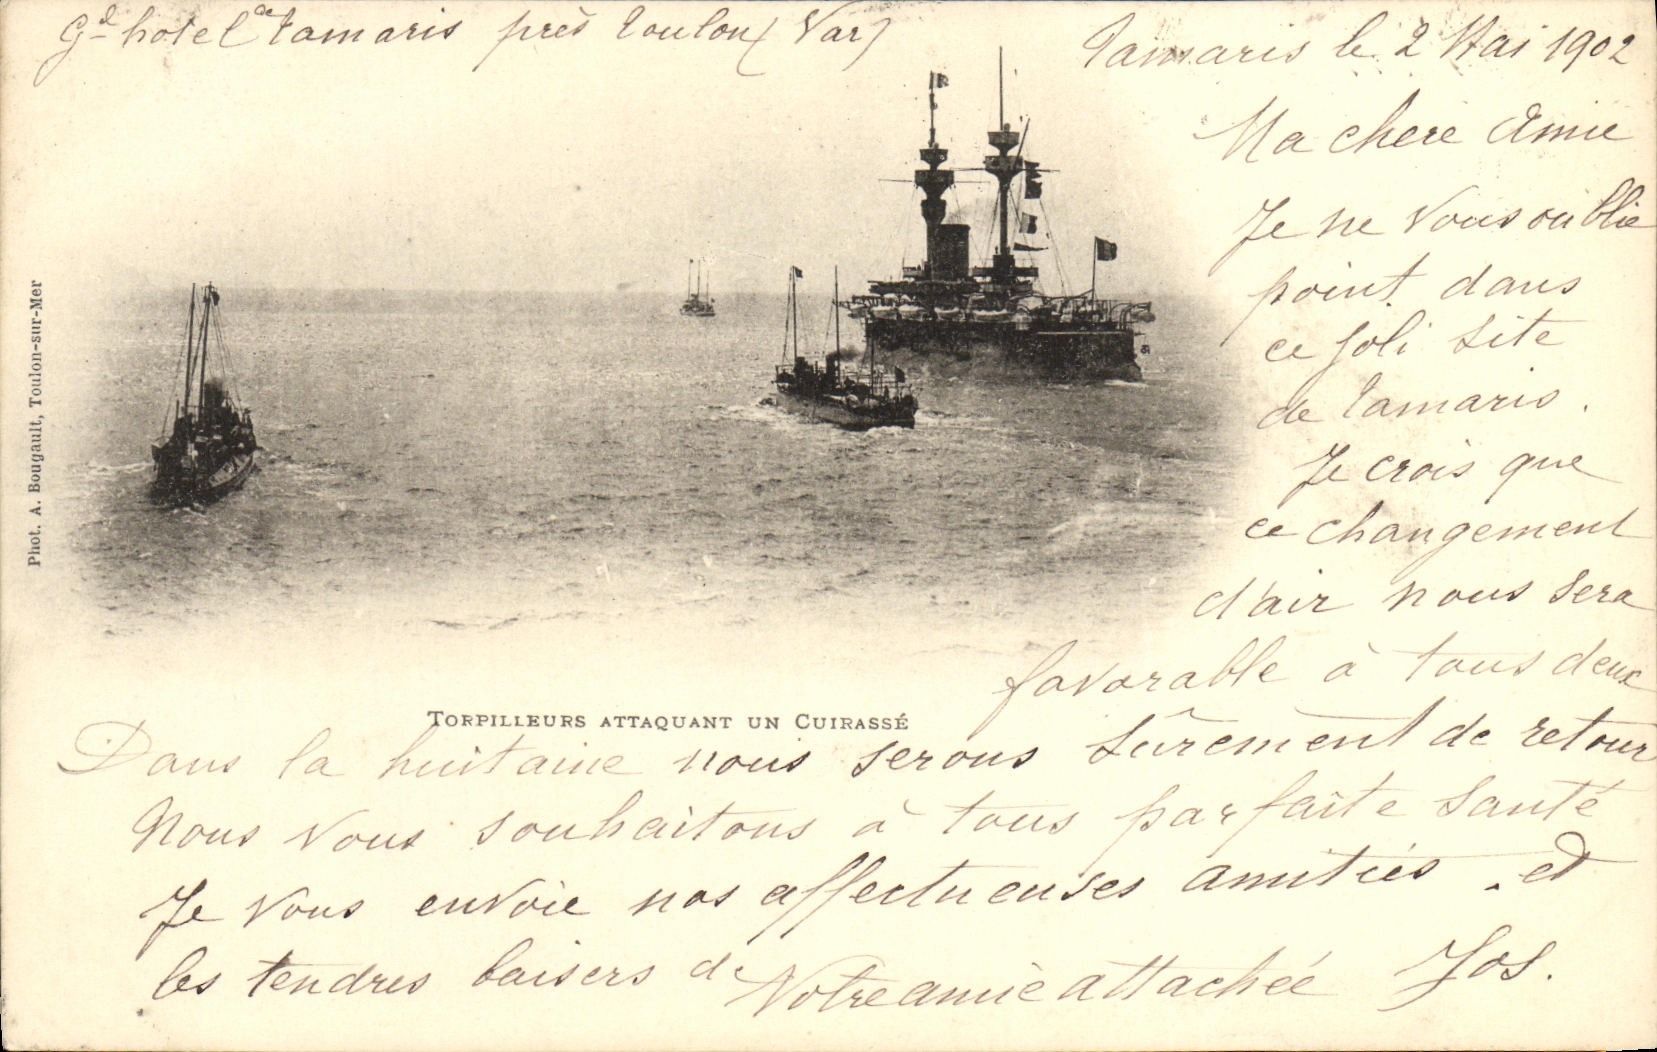 Gd hotel de Tamaris près Toulon (Var)
Tamaris le 2 Mai 1902
Ma chère Amie
Je ne vous oublie
point dans
ce joli site
de Tamaris.
Je crois que
ce changement
d'air nous sera
favorable à tous deux
Phot. A. Bougault, Toulon-sur-Mer
TORPILLEURS ATTAQUANT UN CUIRASSÉ
Dans la huitaine nous serons sûrement de retour
Nous vous souhaitons à tous parfaite santé
Je vous envoie nos affectueuses amitiés . et
les tendres baisers de Votre amie attachée Jos.